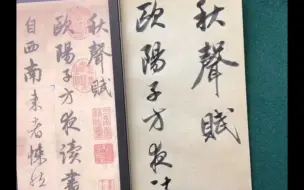 秋聲賦
歐陽子方夜
秋聲賦
歐陽子方夜读書
自西南来者悚然